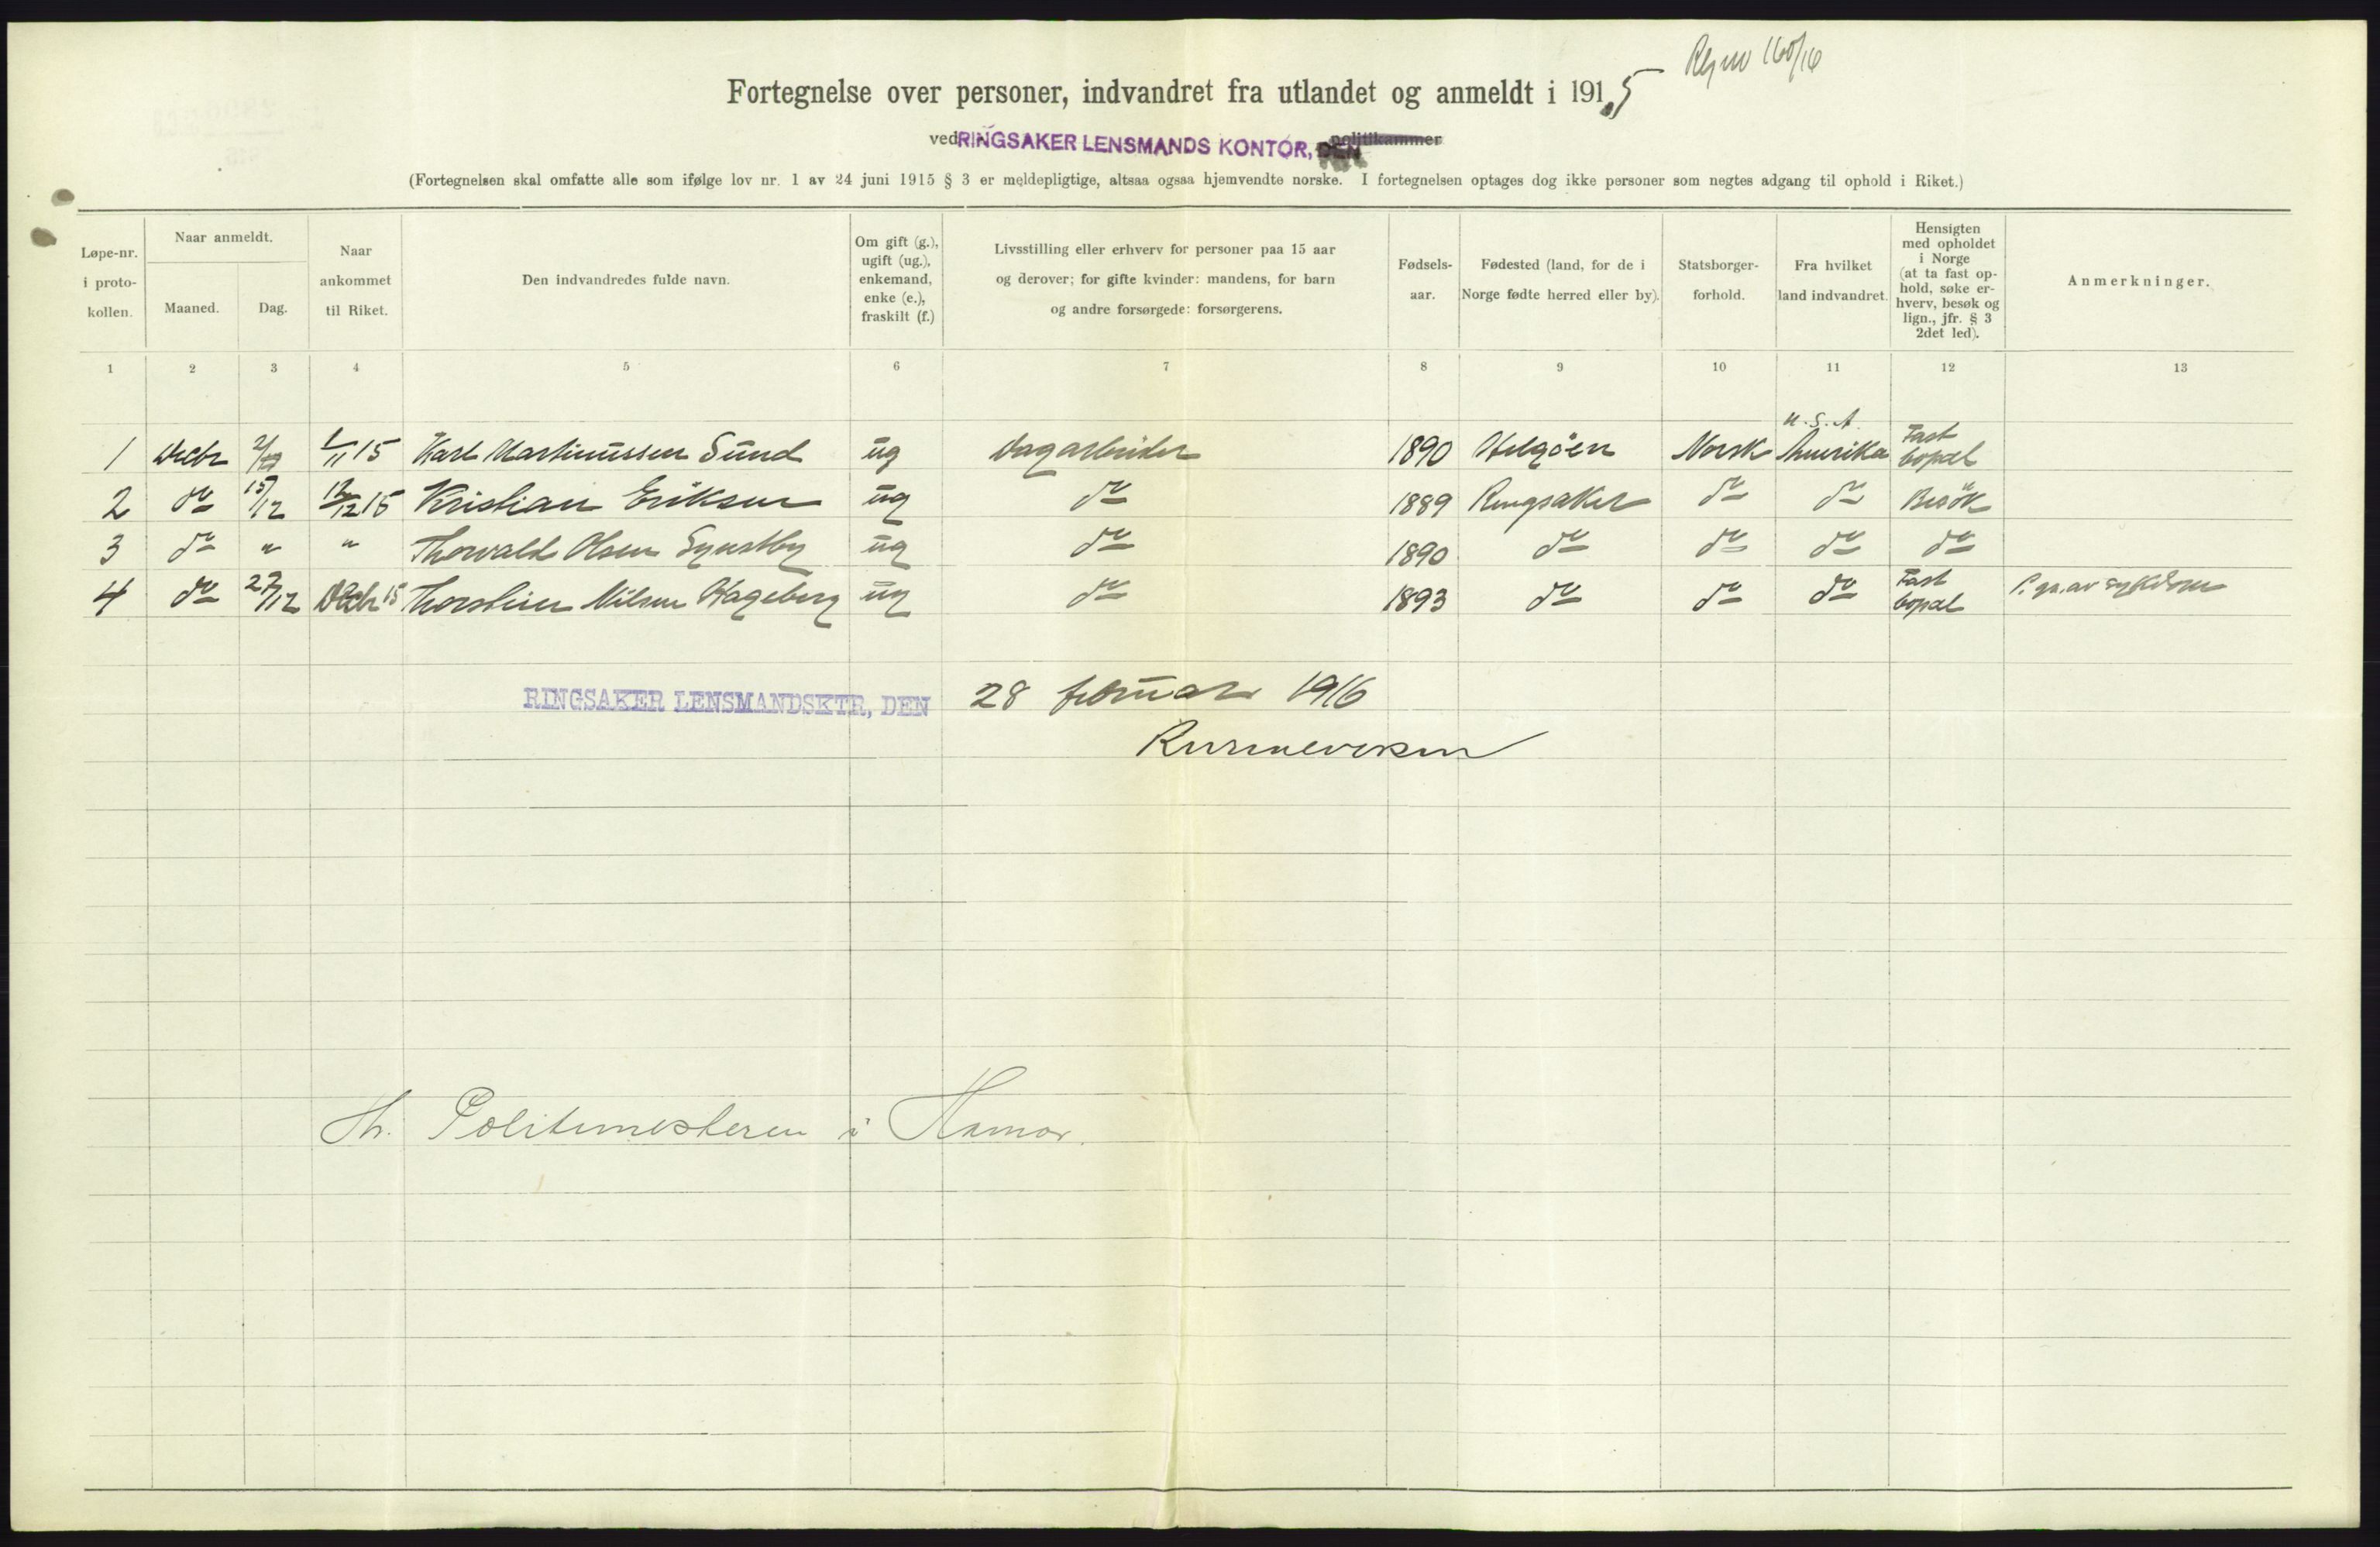 Rg nr 160/16
Fortegnelse over personer, indvandret fra utlandet og anmeldt i 1915
ved RINGSAKER LENSMANDS KONTOR, DEN politikammer
(Fortegnelsen skal omfatte alle som ifølge lov nr. 1 av 24 juni 1915 § 3 er meldepligtige, altsaa ogsaa hjemvendte norske. I fortegnelsen optages dog ikke personer som negtes adgang til ophold i Riket.)
Løpe-nr. i proto- kollen.
Naar anmeldt.
Maaned. Dag.
Naar ankommet til Riket.
Den indvandredes fulde navn.
Om gift (g.), ugift (ug.), enkemand, enke (e.), fraskilt (f.)
Livsstilling eller erhverv for personer paa 15 aar
og derover; for gifte kvinder: mandens, for barn
og andre forsørgede: forsørgerens.
Fødsels- aar.
Fødested (land, for de i Norge fødte herred eller by).
Statsborger- forhold.
Fra hvilket land indvandret.
Hensigten med opholdet i Norge (at ta fast op- hold, søke er- hverv, besøk og lign., jfr. § 3 2det led).
Anmerkninger.
1 2 3 4 5 6 7 8 9 10 11 12 13
1 Decbr 2/12 1/11 15 Karl Martinussen Sund ug Dagarbeider 1890 Helgöen Norsk U.S.A. Amerika Fast bopæl
2 do 15/12 12/12 15 Kristian Eriksen ug do 1889 Ringsaker do do Besök
3 do " " Thorvald Olsen ug do 1890 do do do do
4 do 27/12 Decbr 15 Thorstein Nilsen Hageberg ug do 1893 do do do Fast bopæl P. gr. av sykdom
RINGSAKER LENSMANDSKTR, DEN 28 februar 1916
Hr. Politimesteren i Hamar.